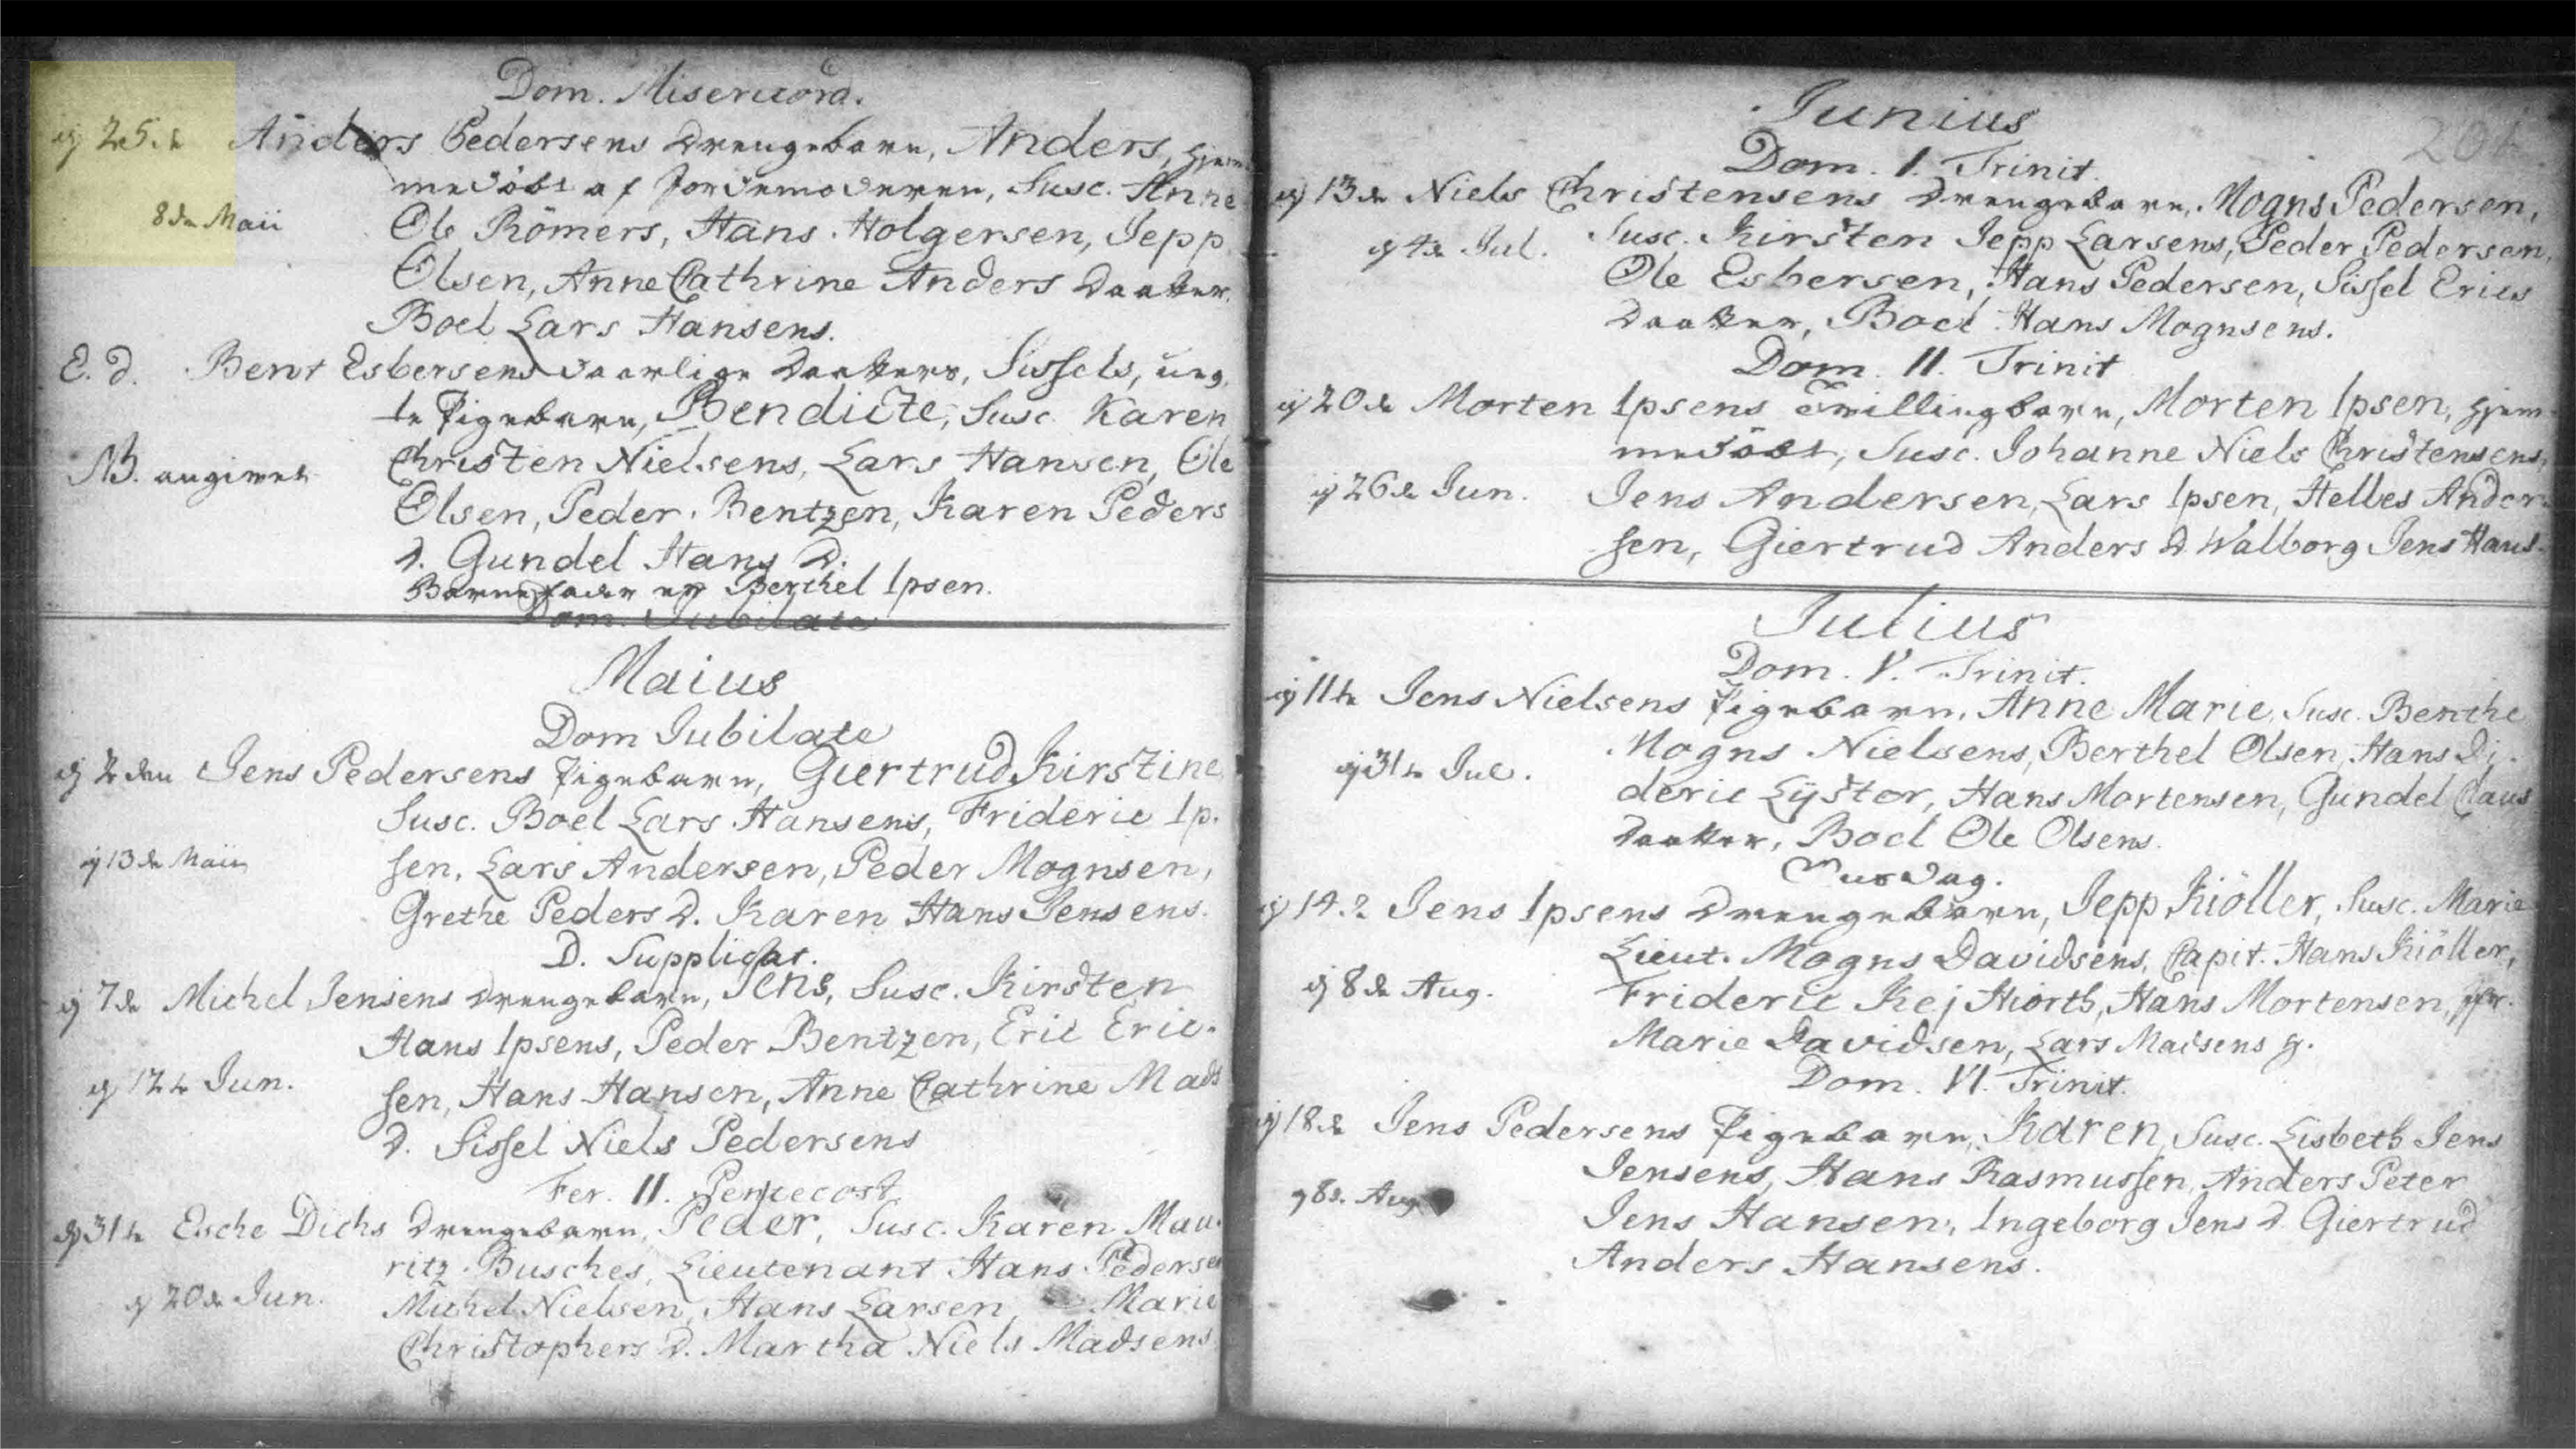 Dom. Misericord.
25de Anders Pedersens Drengebarn, Anders, hjem-
medöbt af Jordemoderen, Susc. Anne
8de Maii Ole Römers, Hans Holgersen, Jepp
Olsen, Anne Cathrine Anders Daatter,
Boel Lars Hansens.
E. d. Bent Esbersens vaarlige Daatters, Sissels, uæg-
te Pigebarn, Bendicte, Susc. Karen
NB. angivet Christen Nielsens, Lars Hansen, Ole
Olsen, Peder Bentzen, Karen Peders
D. Gundel Hans D.
Barnefader er Berthel Ipsen.
Dom. Jubilate
Maius
Dom Jubilate
2den Jens Pedersens Pigebarn, Giertrud Kirstine
Susc. Boel Lars Hansens, Frideric Ip-
13de Maii sen, Lars Andersen, Peder Mognsen,
Grethe Peders D. Karen Hans Jensens.
D. Supplicat.
7de Michel Jensens Drengebarn, Jens, Susc. Kirsten
Hans Ipsens, Peder Bentzen, Eric Eric-
12te Jun. sen, Hans Hansen, Anne Cathrine Mads
D. Sissel Niels Pedersens
Fer. II. Pentecost.
31te Esche Dichs Drengebarn, Peder, Susc. Karen Mau-
ritz Busches, Lieutenant Hans Pedersen
20de Jun. Michel Nielsen, Hans Larsen, Marie
Christophers D. Martha Niels Madsens
Junius
Dom. I. Trinit.
13de Niels Christensens Drengebarn, Mogns Pedersen,
4de Jul. Susc. Kirsten Jepp Larsens, Peder Pedersen,
Ole Esbersen, Hans Pedersen, Sissel Erics
Daatter, Boel Hans Mognsens.
Dom. II. Trinit
20de Morten Ipsens Tvillingbarn, Morten Ipsen, hjem-
medöbt, Susc. Johanne Niels Christensens,
26de Jun. Jens Andersen, Lars Ipsen, Helles Ander-
sen, Giertrud Anders D Walborg Jens Hans-
Julius
Dom. V. Trinit.
11te Jens Nielsens Pigebarn, Anne Marie, Susc. Benthe
Mogns Nielsens, Berthel Olsen, Hans Di-
31te Jul. deric Lÿster, Hans Mortensen, Gundel Claus
Daatter, Boel Ole Olsens.
14. Jens Ipsens Drengebarn, Jepp Kiöller, Susc. Marie
Lieut. Mogns Davidsens, Capit. Hans Kiöller,
8de Aug. Frideric Kej Hiorth, Hans Mortensen, Jfr.
Marie Davidsen, Lars Madsens H.
Dom. VI. Trinit.
18de Jens Pedersens Pigebarn, Karen, Susc. Lisbeth Jens
Jensens, Hans Rasmussen, Anders Peter
8d. Aug. Jens Hansen, Ingeborg Jens D. Giertrud
Anders Hansens.